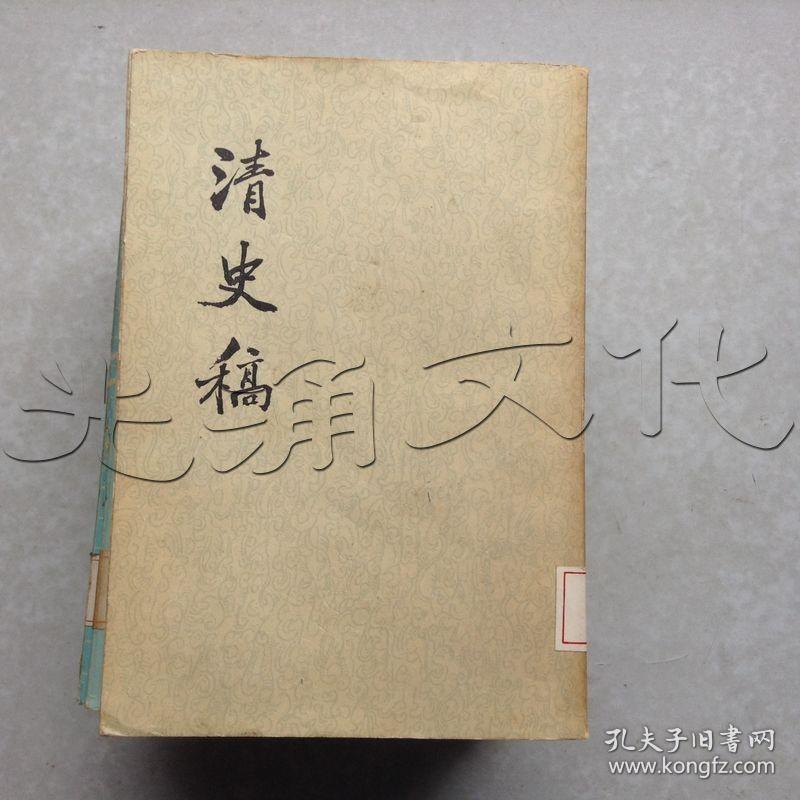 清史稿
光涌文化
孔夫子旧書网
www.kongfz.com